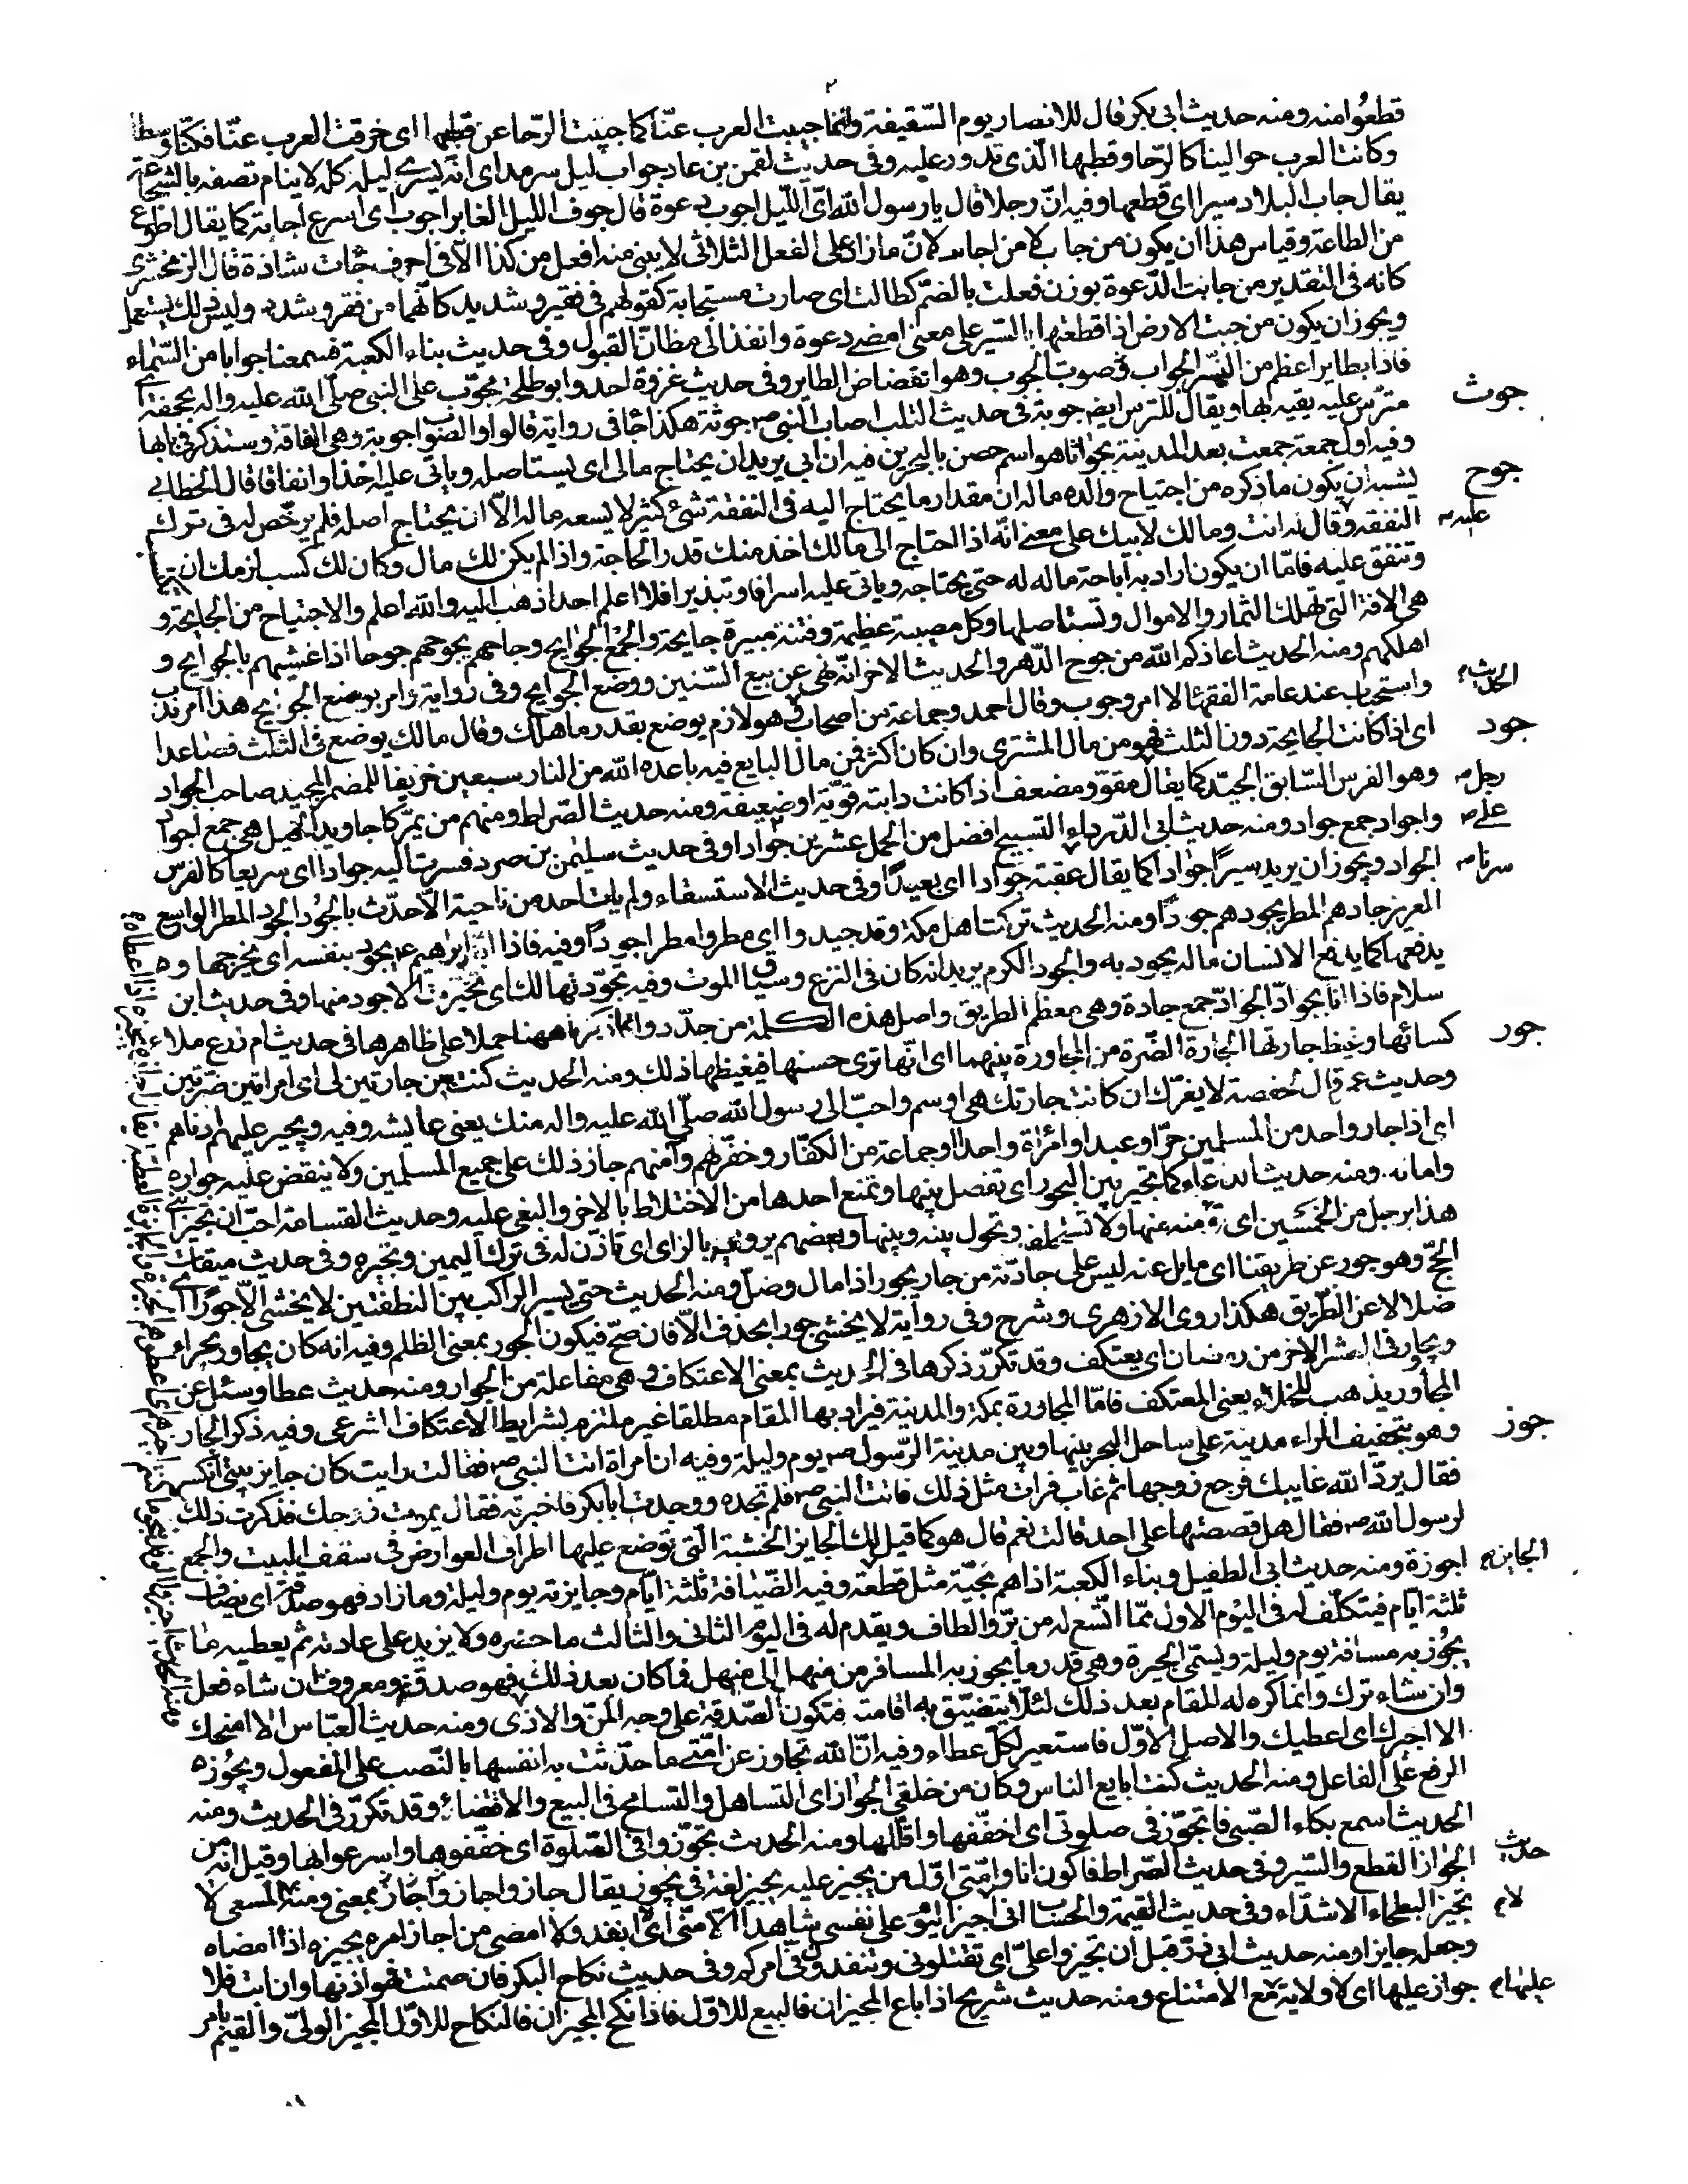 قطعوا منه ومنه حديث ابي بكر قال للانصار يوم السّقيفة وانّما جيبت العرب عنّا كما جيبت الرّحا عن قطبها اى خرقت العرب عنّا فكنّا وسطا
وكانت العرب حوالينا كالرّحا وقطبها الّذى تدور عليه وفى حديث لقمن بن عاد جواب ليل سرمد اى انّه يسرى ليله كله لا ينام تصفه بالشجاعة
يقال جاب البلاد سيرا اى قطعها وفيه انّ رجلا قال يا رسول الله اىّ اللّيل اجوب دعوة قال جوف الليل الغابر اجوب اى اسرع اجابة كما يقال اطوع
من الطاعة وقياس هذا ان يكون من جاب لا من اجاب لانّ ما زاد على الفعل الثلاثى لا يبنى منه افعل من كذا الّا فى احرف جاءت شاذة قال الزمخشرى
كانه فى التقدير من جابت الدّعوة بوزن فعلت بالضمّ كطالت اى صارت مستجابة كقولهم فى فقير وشديد كانّهما من فقر وشدد وليس ذلك بمستعمل
ويجوز ان يكون من جبت الارض اذا قطعتها بالسّير على معنى امضى دعوة وانفذ الى مظانّ القبول وفى حديث بناء الكعبة فسمعنا جوابا من السّماء
فاذا بطاير اعظم من النسر الجواب صوت الجوب وهو انقضاض الطاير وفى حديث غزوة احد وابو طلحة مجوّب على النبى صلّى الله عليه واله بحجفة اى
مترّس عليه يقيه بها ويقال للترس ايضا جوبة
جوث
فى حديث التلب اصاب النبى ص جوثة هكذا جاء فى رواية قالوا والصّواب حوبة وهى الفاقة وستذكر فى بابها
وفيه اول جمعة جمعت بعد المدينة بجواثا هو اسم حصن بالبحرين
جوح
فيه ان ابى يريد ان يجتاح مالى اى يستاصله وياتى عليه اخذا وانفاقا قال الخطابى
يشبه ان يكون ما ذكره من اجتياح والده ماله ان مقدار ما يحتاج اليه فى النفقة شىء كثير لا يسعه ماله الّا ان يجتاح اصله فلم يرخّص له فى ترك
النفقة عليه وقال له انت ومالك لابيك على معنى انّه اذا احتاج الى مالك اخذ منك قدر الحاجة واذا لم يكن لك مال وكان لك كسب لزمك ان تكتسب
وتنفق عليه فامّا ان يكون اراد به اباحة ماله له حتى يجتاحه وياتى عليه اسرافا وتبذيرا فلا اعلم احدا ذهب اليه والله اعلم والاجتياح من الجايحة و
هى الافة التى تهلك الثمار والاموال وتستاصلها وكل مصيبة عظيمة وفتنة مبيرة جايحة والجمع الجوايح وجاحهم يجوحهم جوحا اذا غشيهم بالجوايح و
اهلكهم ومنه الحديث اعاذكم الله من جوح الدّهر والحديث الاخر انّه نهى عن بيع السّنين ووضع الجوايح وفى رواية وامر بوضع الجوايح هذا امر ندب
واستحباب عند عامة الفقهاء لا امر وجوب وقال احمد وجماعة من اصحاب الحديث هو لازم يوضع بقدر ما هلك وقال مالك يوضع فى الثلث فصاعدا
اى اذا كانت الجايحة دون الثلث فهو من مال المشترى وان كان اكثر فمن مال البايع
جود
فيه باعده الله من النار سبعين خريفا للمضمر المجيد صاحب الجواد
وهو الفرس السّابق الجيّد كما يقال رجل مقوّ ومضعف اذا كانت دابته قويّة او ضعيفة ومنه حديث الصّراط ومنهم من يمرّ كاجاويد الخيل هى جمع اجواد
واجواد جمع جواد ومنه حديث ابى الدّرداء التسبيح افضل من الحمل على عشرين جوادا وفى حديث سليمن بن صرد فسرت اليه جوادا اى سريعا كالفرس
الجواد ويجوز ان يريد سيرًا جوادا كما يقال سرنا عقبة جوادا اى بعيدًا وفى حديث الاستسقاء ولم يات احد من ناحية الّا حدّث بالجود الجود المطر الواسع
الغزير جادهم المطر يجودهم جودًا ومنه الحديث تركت اهل مكة وقد جيدوا اى مطروا مطرا جودًا وفيه فاذا ابنه ابرهيم ع يجود بنفسه اى يخرجها و
يدفعها كما يدفع الانسان ماله يجود به والجود الكرم يريد انه كان فى النزع وسياق الموت وفيه تجوّدتها لك اى تخيّرت الاجود منها وفى حديث ابن
سلام فاذا انا بجوادّ الجوادّ جمع جادة وهى معظم الطريق واصل هذه الكلمة من جدد وانما ذكرناها ههنا حملا على ظاهرها
جور
فى حديث ام زرع ملاء
كسائها وغيظ جارتها الجارة الضّرة من المجاورة بينهما اى انّها ترى حسنها فيغيظها ذلك ومنه الحديث كنت بين جارتين لى اى امراتين ضرّتين
وحديث عمر قال لحفصة لا يغرّك ان كانت جارتك هى اوسم واحبّ الى رسول الله صلّى الله عليه واله منك يعنى عايشه وفيه ويجير عليهم ادناهم
اى اذا جار واحد من المسلمين حرّا وعبدا وامراة واحدا او جماعة من الكفّار وخفّرهم وآمنهم جاز ذلك على جميع المسلمين ولا ينقض عليه جواره
وامانه ومنه حديث الدعاء كما تجير بين البحور اى تفصل بينها وتمنع احدها من الاختلاط بالاخر والبغى عليه وحديث القسامة احبّ ان تجير ابنى
هذا برجل من الخمسين اى تؤمنه منها ولا تستحلفه وتحول بينه وبينها وبعضهم يرويه بالزاى اى تاذن له فى ترك اليمين وتجيزه وفى حديث ميقات
الحجّ وهو جور عن طريقنا اى مايل عنه ليس على جادّته من جار يجور اذا مال وضلّ ومنه الحديث حتى يسير الراكب بين النطفتين لا يخشى الّا جورًا اى
ضلالا عن الطّريق هكذا روى الازهرى وشرح وفى رواية لا يخشى جورا بحذف الّا فان صحّ فيكون الجور بمعنى الظلم وفيه انه كان يجاور بحراء و
يجاور فى العشر الاخر من رمضان اى يعتكف وقد تكرّر ذكرها فى الحديث بمعنى الاعتكاف وهى مفاعلة من الجوار ومنه حديث عطا وسئل عن
المجاور يذهب للخلاء يعنى المعتكف فامّا المجاورة بمكة والمدينة فيراد بها المقام مطلقا غير ملتزم بشرايط الاعتكاف الشرعى وفيه ذكر الجار
وهو بتخفيف الراء مدينة على ساحل البحر بينها وبين مدينة الرّسول ص يوم وليلة
جوز
وفيه ان امراة اتت النبى ص فقالت رايت كان جايز بيتى انكسر
فقال يردّ الله غايبك فرجع زوجها ثم غاب فرات مثل ذلك فاتت النبى ص فلم تجده ووجدت ابابكر فاخبرته فقال يموت زوجك فذكرت ذلك
لرسول الله ص فقال هل قصصتها على احد قالت نعم قال هو كما قيل لك الجايز الخشبة الّتى توضع عليها اطراف العوارض فى سقف البيت والجمع
اجوزة ومنه حديث ابى الطفيل وبناء الكعبة اذا هم بحيّة مثل قطعة الجايز وفيه الضّيافة ثلثة ايّام وجايزته يوم وليلة وما زاد فهو صدقة اى يضاف
ثلثة ايّام فيتكلّف له فى اليوم الاول ممّا اتّسع له من برّ والطاف ويقدم له فى اليوم الثانى والثالث ما حضره ولا يزيد على عادته ثم يعطيه ما
يجوز به مسافة يوم وليلة ويسمّى الجيزة وهى قدر ما يجوز به المسافر من منهل الى منهل فما كان بعد ذلك فهو صدقة ومعروف ان شاء فعل
وان شاء ترك وانما كره له المقام بعد ذلك لئلّا يتضيّق به اقامته فتكون الصّدقة على وجه المنّ والاذى ومنه حديث العبّاس الا امنحك
الا اجيزك اى اعطيك والاصل الاوّل فاستعير لكلّ عطاء وفيه انّ الله تجاوز عن امّتى ما حدّثت به انفسها بالنّصب على المفعول ويجوز
الرفع على الفاعل ومنه الحديث كنت ابايع الناس وكان من خلقى الجواز اى التساهل والتسامح فى البيع والاقتضاء وقد تكرّر فى الحديث ومنه
الحديث اسمع بكاء الصّبى فاتجوّز فى صلوتى اى اخفّفها واقلّلها ومنه الحديث تجوّزوا فى الصّلوة اى خفّفوها واسرعوا بها وقيل انه من
الجواز القطع والسّير وفى حديث الصّراط فاكون انا وامّتى اوّل من يجيز عليه يجيز لغة فى يجوز يقال جاز واجاز بمعنى ومنه حديث المسعى لا
تجيز البطحاء الا شدّا وفى حديث القيمة والحساب انى لا اجيز اليوم على نفسى شاهدا الّا منّى اى لا انفذ ولا امضى من اجاز امره يجيزه اذا امضاه
وجعله جايزا ومنه حديث ابى ذرّ قبل ان تجيزوا علىّ اى تقتلونى وتنفذوا فىّ امركم وفى حديث نكاح البكر فان صمتت فهو اذنها وان ابت فلا
جواز عليها اى لا ولاية عليها مع الامتناع ومنه حديث شريح اذا باع المجيزان فالبيع للاوّل فاذا نكح المجيزان فالنكاح للاوّل المجيز الولىّ والقيّم بامر